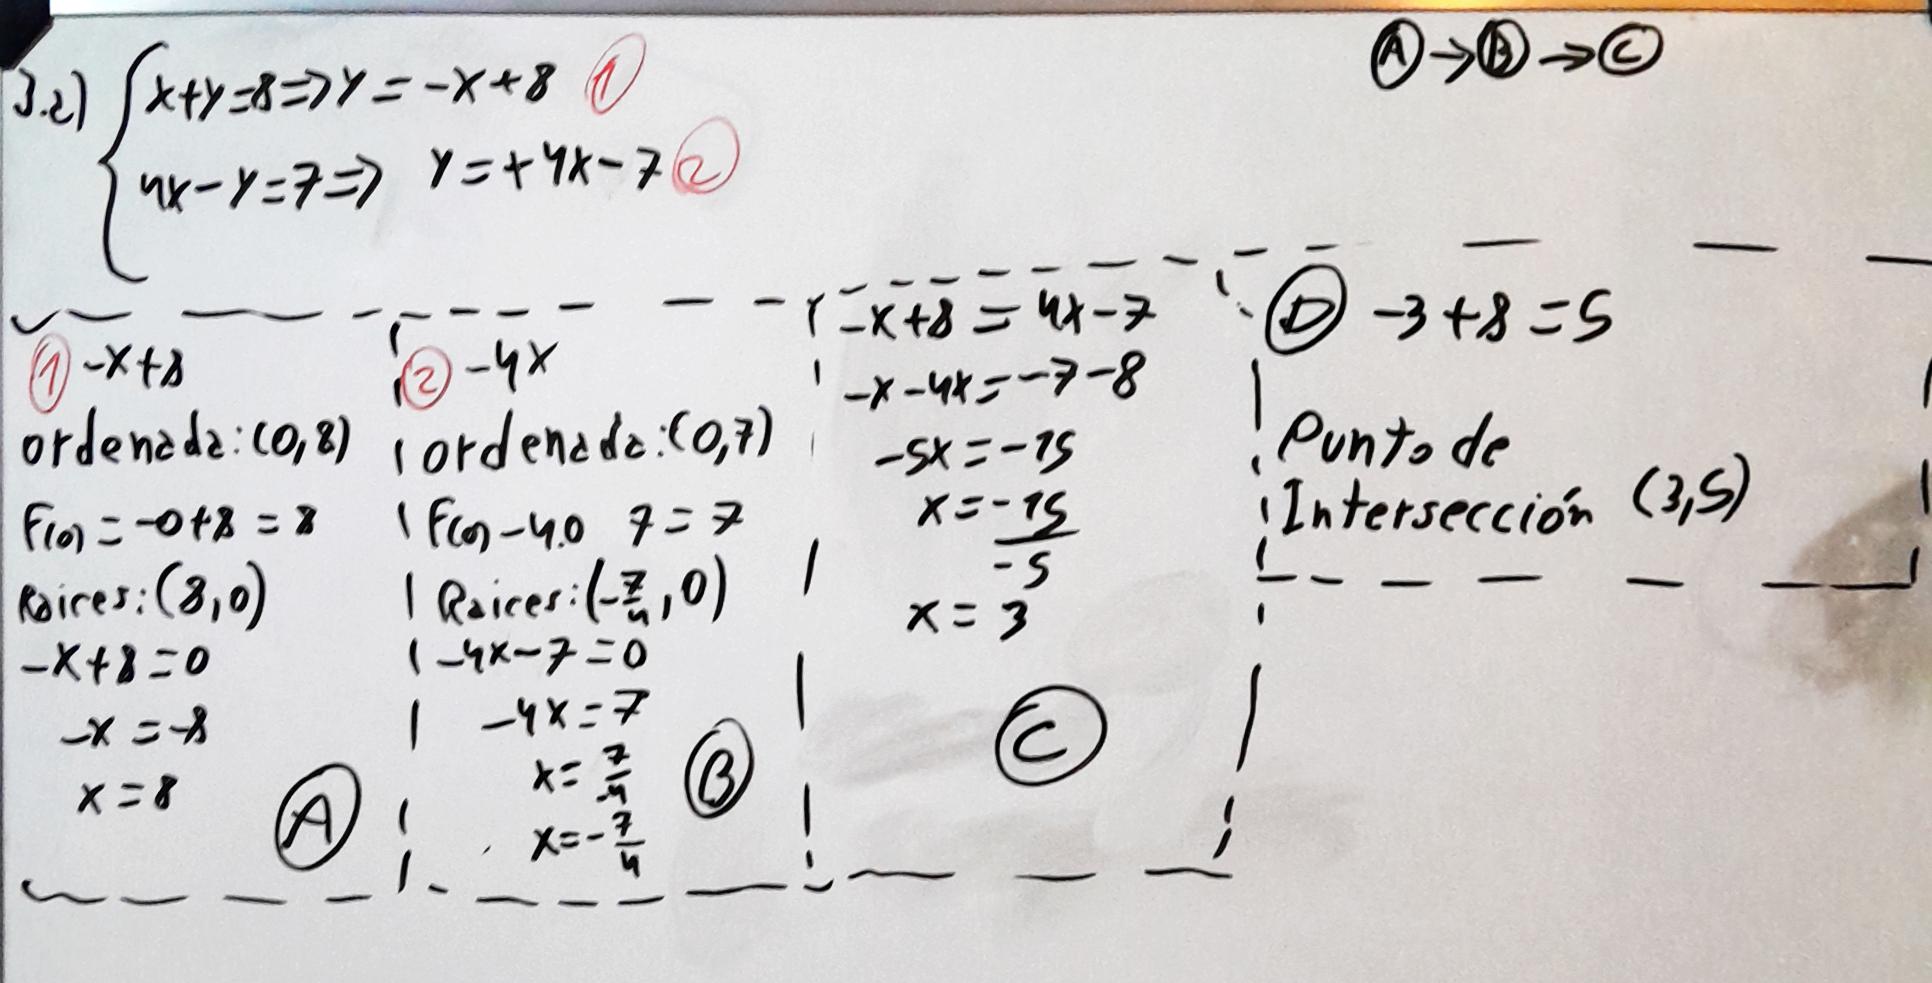 3.2) x+y=8=>y=-x+8 ①
4x-y=7=> y=+4x-7 ②
Ⓐ→Ⓑ→Ⓒ
① -x+8
ordenada:(0,8)
F(0)=-0+8=8
Raices:(8,0)
-x+8=0
-x=-8
x=8
Ⓐ
② -4x
ordenada:(0,7)
F(0)-4.0 7=7
Raices:(-7/4,0)
-4x-7=0
-4x=7
x=7/-4
x=-7/4
Ⓑ
-x+8=4x-7
-x-4x=-7-8
-5x=-15
x=-15/-5
x=3
Ⓒ
Ⓓ -3+8=5
Punto de
Intersección (3,5)